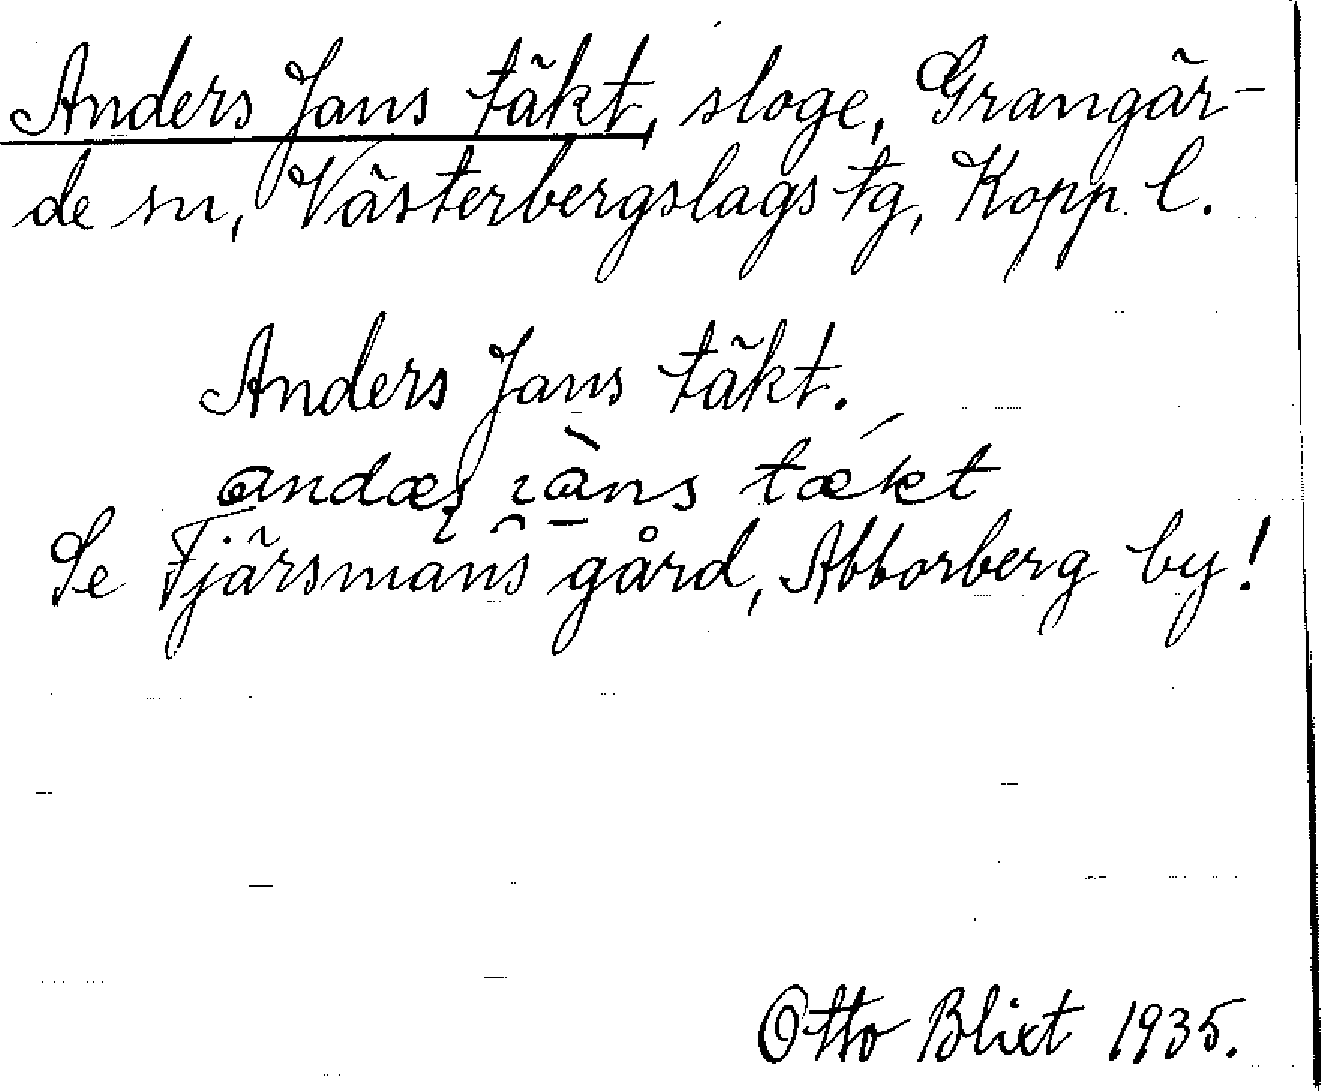 Anders Jans täkt, sloge, Grangär-
de sn, Västerbergslags tg, Kopp. l.
Anders Jans täkt.
andæʂ ɿàns tækt
Se Fjärsmans gård, Abborberg by!
Otto Blixt 1935.